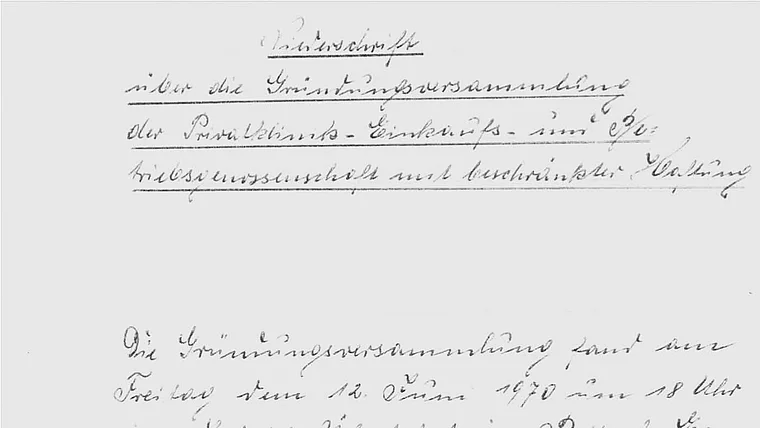 Niederschrift
über die Gründungsversammlung
der Privatklinik-Einkaufs- und Be=
triebsgenossenschaft mit beschränkter Haftung
Die Gründungsversammlung fand am
Freitag dem 12. Juni 1970 um 18 Uhr